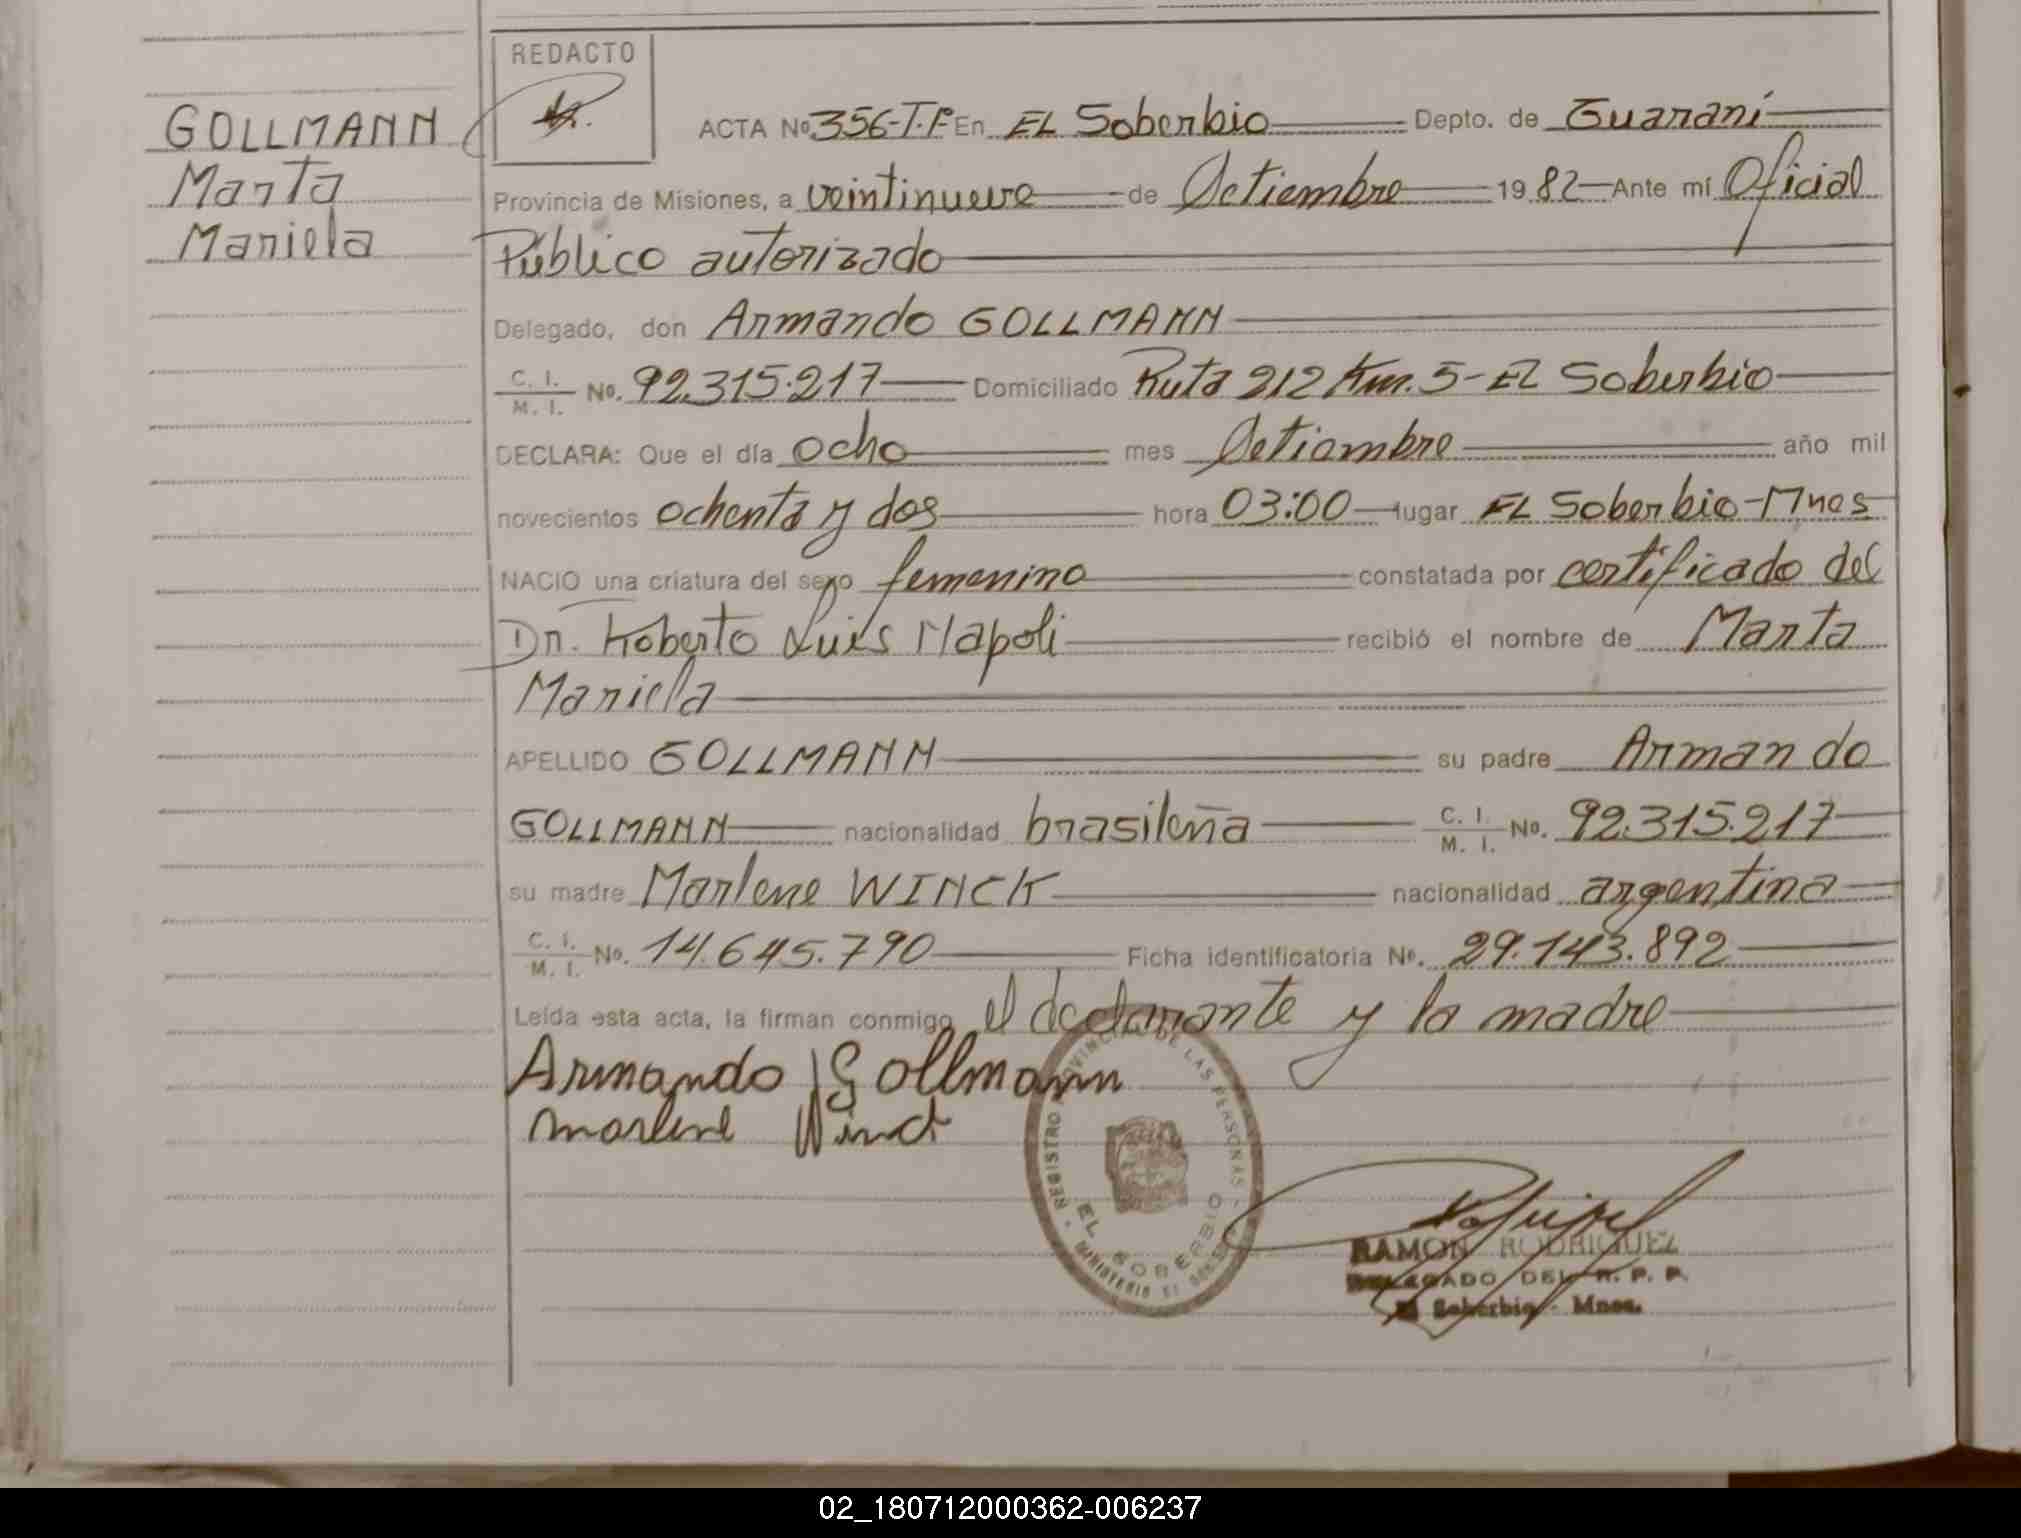 REDACTO
GOLLMANN
Marta
Mariela
ACTA Nº 356-T.F. En EL Soberbio Depto. de Guaraní
Provincia de Misiones, a veintinueve de Setiembre 1982 Ante mí Oficial
Público autorizado
Delegado, don Armando GOLLMANN
C. I. / M. I. No. 92.315.217 Domiciliado Ruta 212 Km. 5-EL Soberbio
DECLARA: Que el día ocho mes Setiembre año mil
novecientos ochenta y dos hora 03:00 lugar EL Soberbio-Mnes
NACIO una criatura del sexo femenino constatada por certificado del
Dr. Roberto Luis Napoli recibió el nombre de Marta
Mariela
APELLIDO GOLLMANN su padre Armando
GOLLMANN nacionalidad brasileña C. I. / M. I. No. 92.315.217
su madre Marlene WINCK nacionalidad argentina
C. I. / M. I. No. 14.645.790 Ficha identificatoria No. 29.143.892
Leída esta acta, la firman conmigo el declarante y la madre
Armando Gollmann
Marlene Winck
REGISTRO PROVINCIAL DE LAS PERSONAS
EL SOBERBIO
MINISTERIO DE GOBIERNO
RAMON RODRIGUEZ
DELEGADO DEL R. P. P.
El Soberbio - Mnes.
02_180712000362-006237